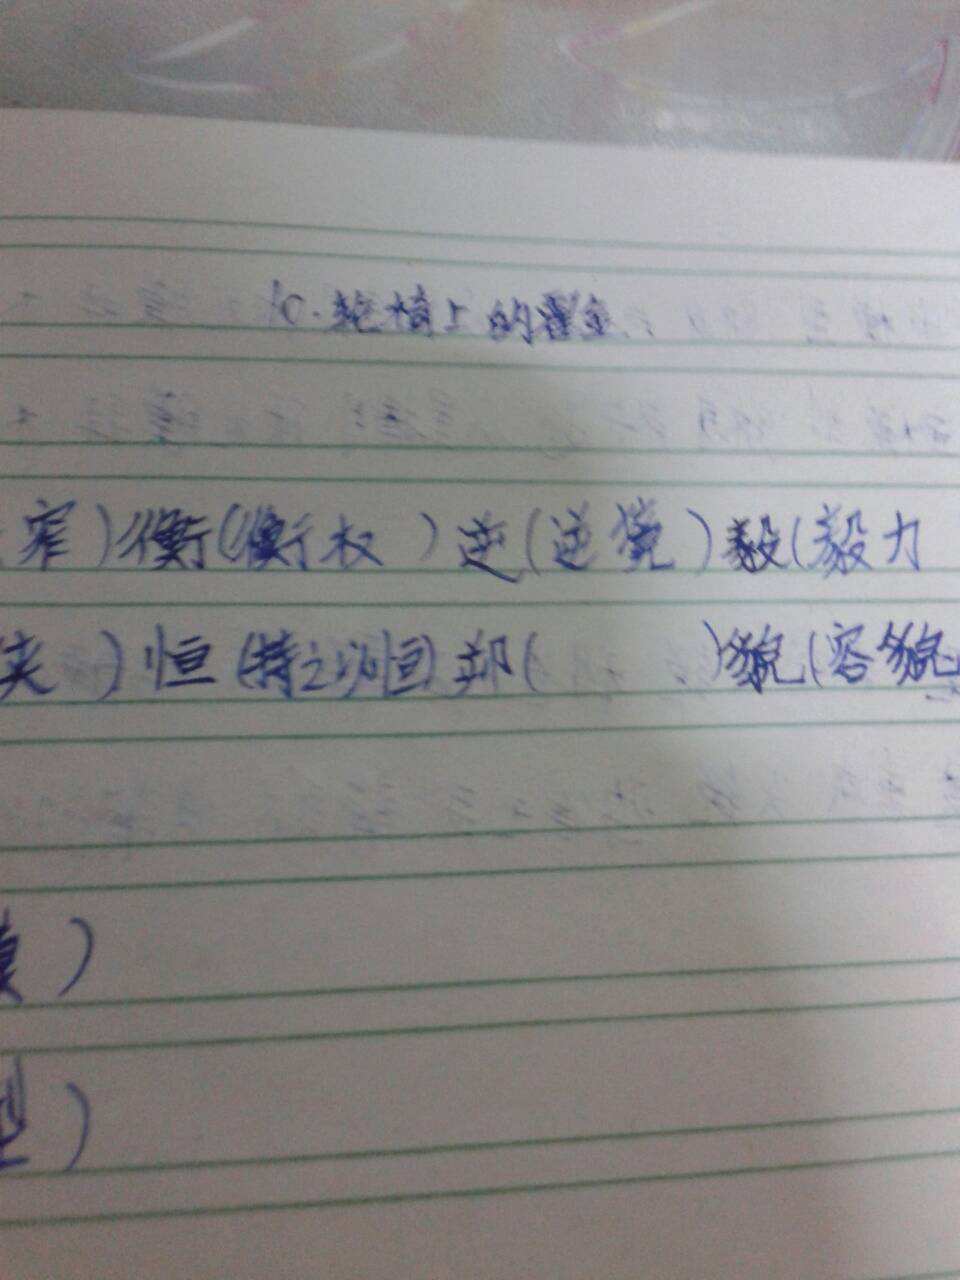 10.轮椅上的霍金
窄)衡(衡权 )逆(逆境)毅(毅力
)恒(持之以恒)却( )貌(容貌
)
型)